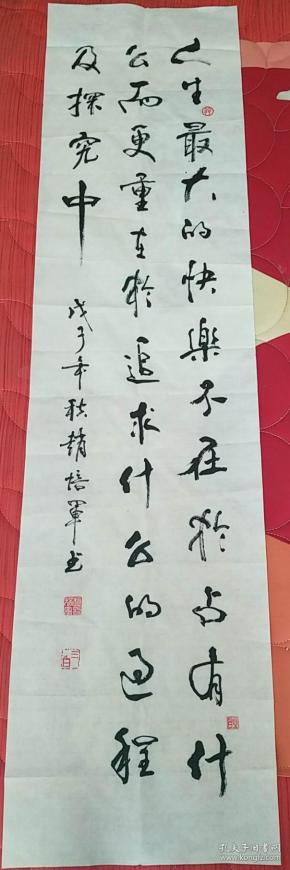 人生最大的快樂不在於占有什
么而更重在於追求什么的過程
及探究中
戊子年秋趙培軍书
孔夫子旧书网